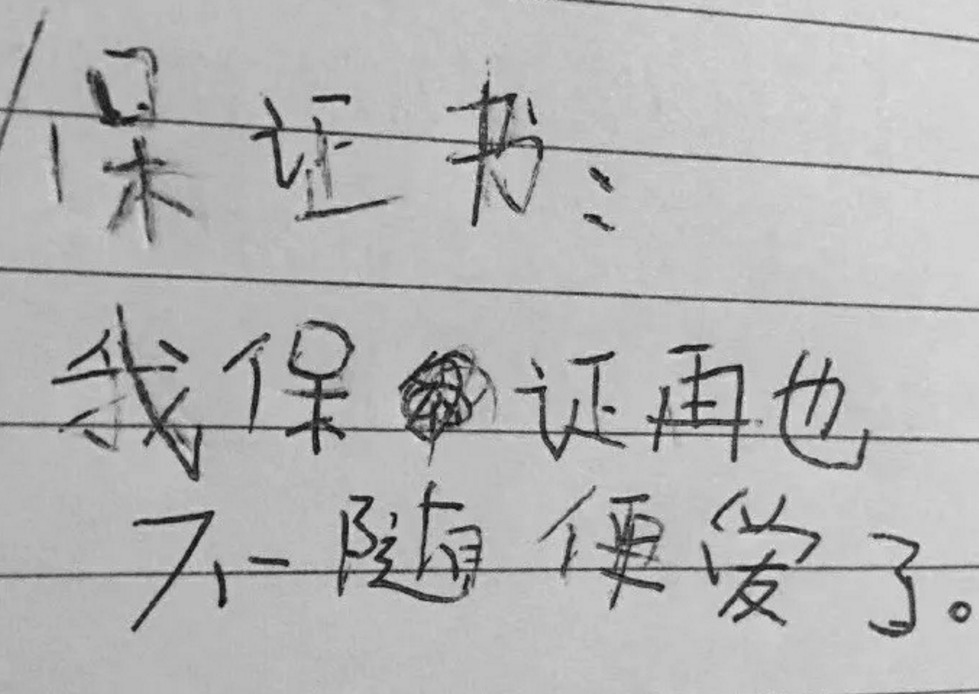 保证书:
我保证再也
不随便爱了。